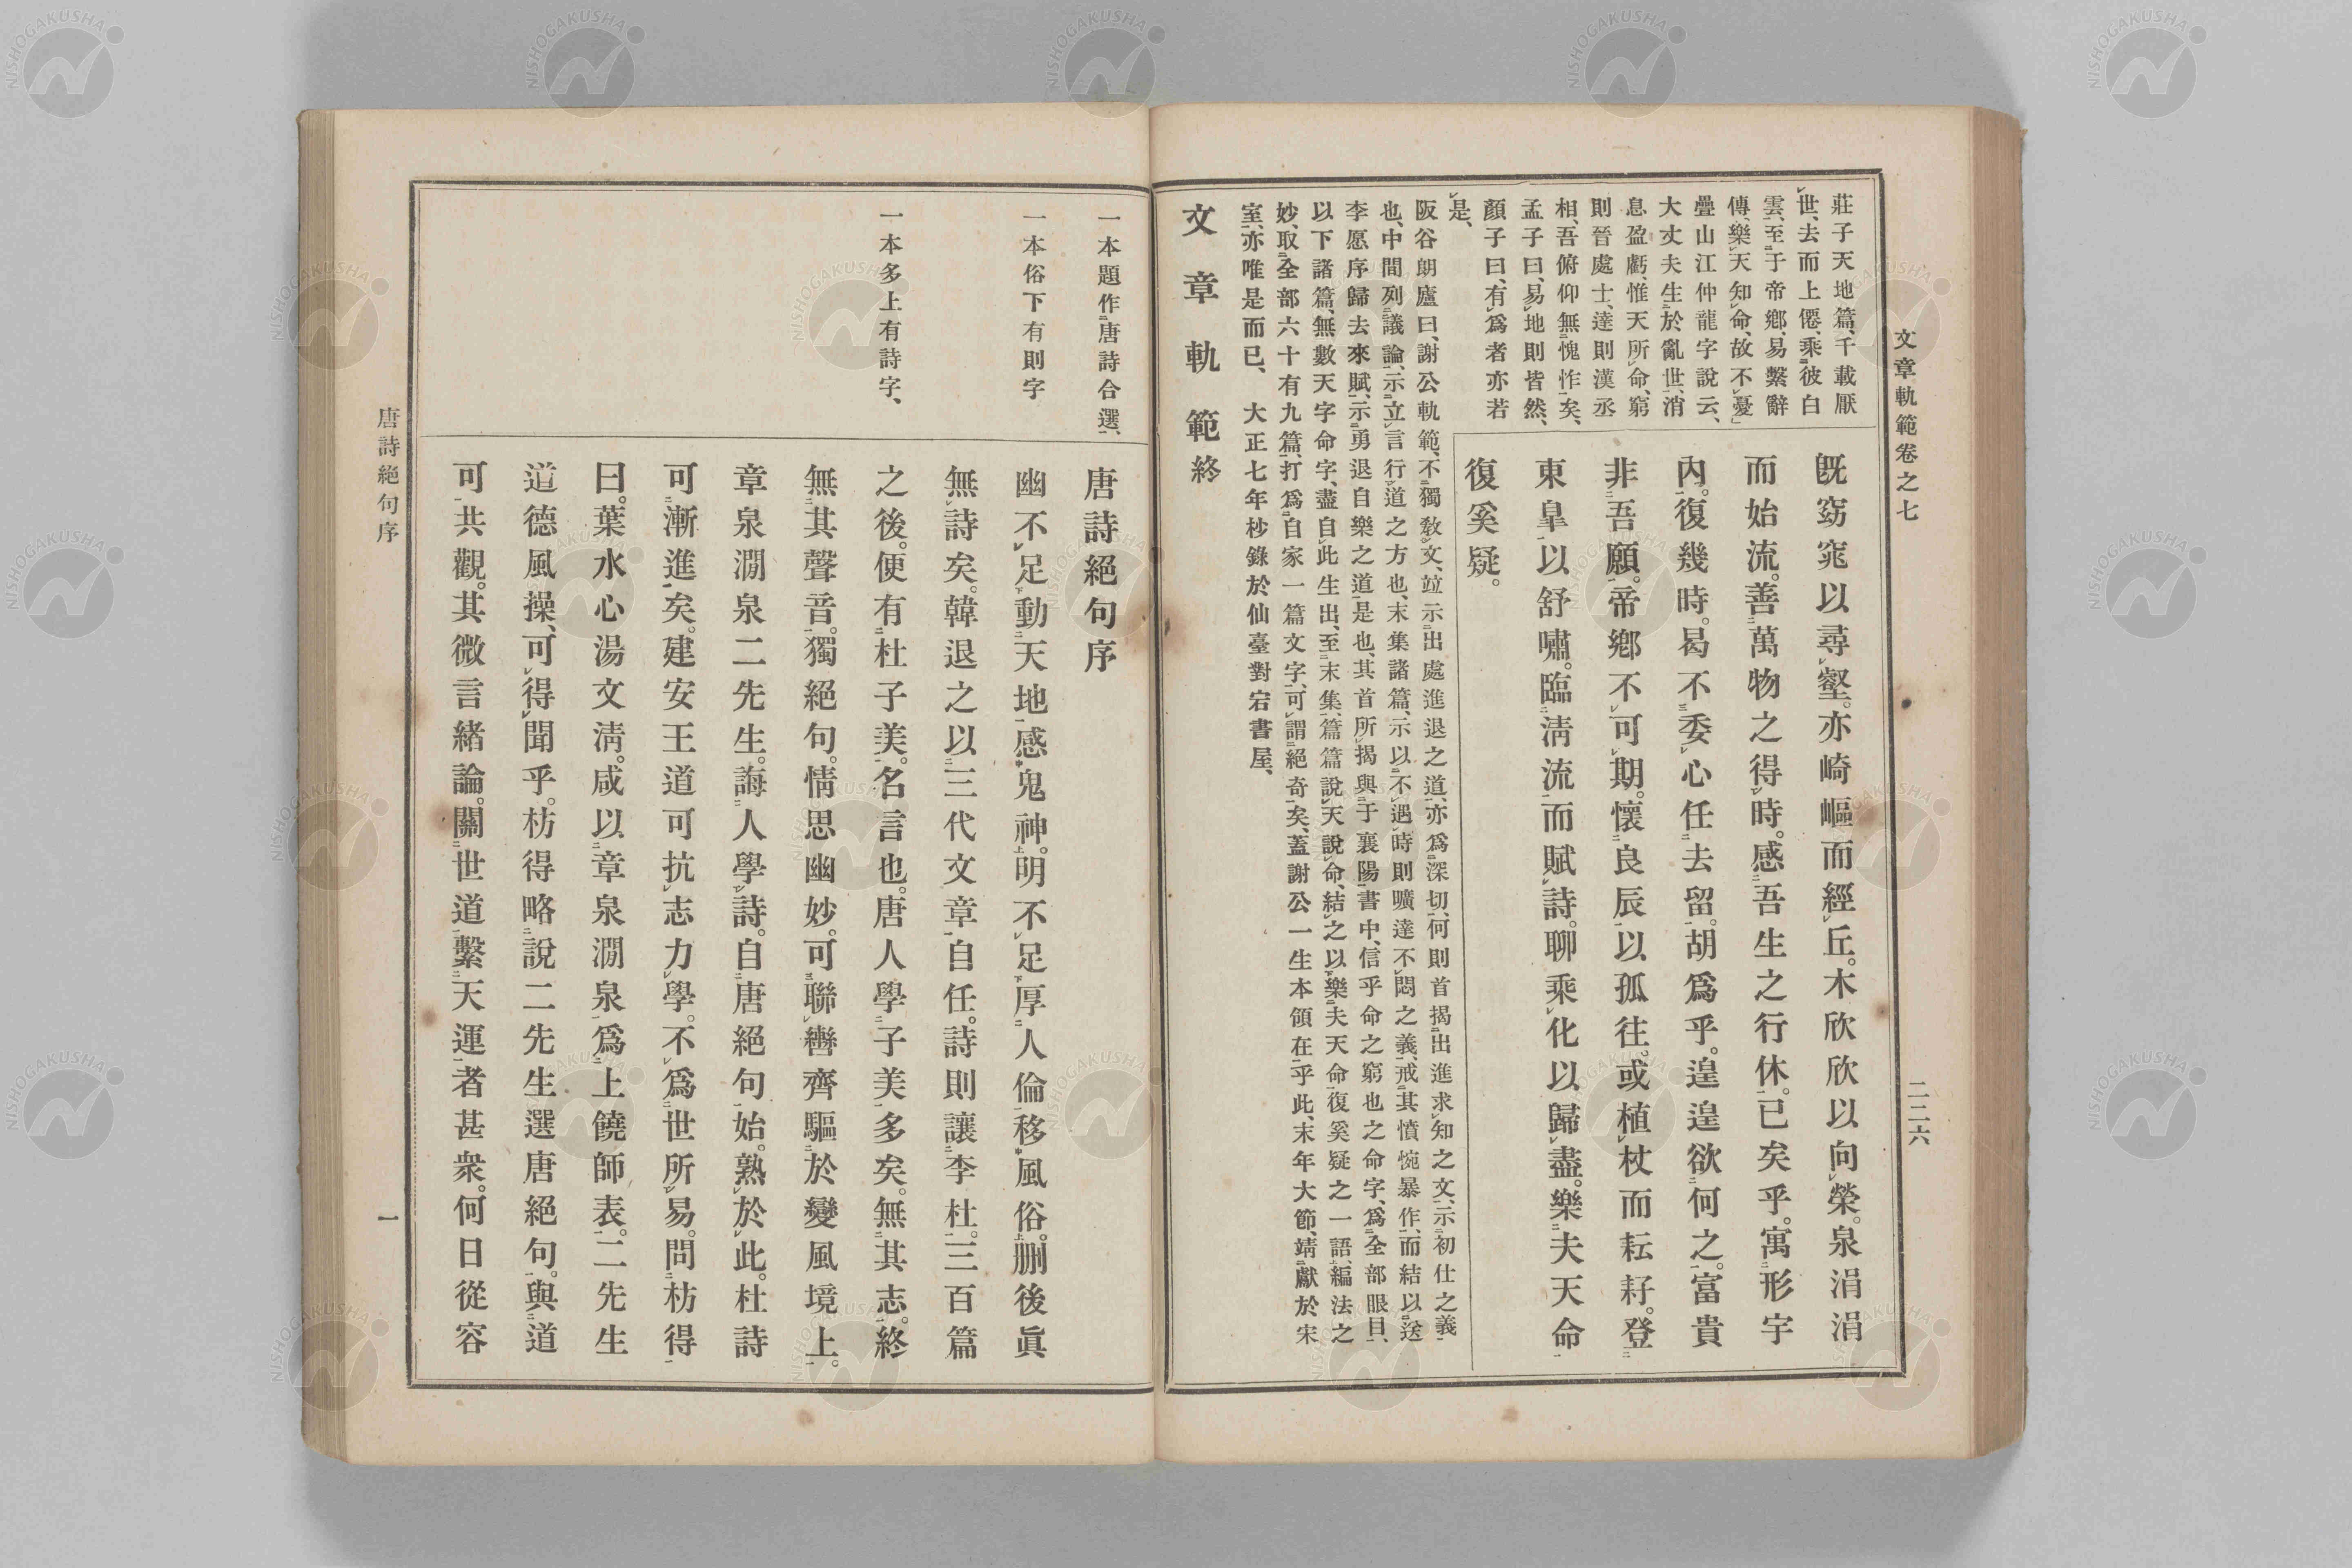 文章軌範卷之七
二二六
莊子天地篇、千載厭
世、去而上僊、乘彼白
雲、至于帝鄕、易繫辭
傳、樂天知命、故不憂」
疊山江仲龍字說云、
大丈夫生於亂世、消
息盈虧、惟天所命、窮
則晉處士、達則漢丞
相、吾俯仰無愧怍矣、
孟子曰、易地則皆然、
顏子曰、有爲者亦若
是、
既窈窕以尋壑。亦崎嶇而經丘。木欣欣以向榮。泉涓涓
而始流。善萬物之得時。感吾生之行休。已矣乎。寓形宇
內。復幾時。曷不委心任去留。胡爲乎。遑遑欲何之。富貴
非吾願。帝鄕不可期。懷良辰以孤往。或植杖而耘耔。登
東皐以舒嘯。臨淸流而賦詩。聊乘化以歸盡。樂夫天命
復奚疑。
阪谷朗廬曰、謝公軌範、不獨敎文、竝示出處進退之道、亦爲深切、何則首揭出進求知之文、示初仕之義
也、中間列議論、示立言行道之方也、末集諸篇、示以不遇時則曠達不悶之義、戒其憤惋暴作、而結以送
李愿序歸去來賦、示勇退自樂之道是也、其首所揭與于襄陽書中、信乎命之窮也之命字、爲全部眼目、
以下諸篇、無數天字命字、盡自此生出、至末集、篇篇說天說命、結之以樂夫天命復奚疑之一語、編法之
妙、取全部六十有九篇、打爲自家一篇文字、可謂絕奇矣、蓋謝公一生本領在乎此、末年大節、靖獻於宋
室、亦唯是而已、大正七年杪錄於仙臺對宕書屋、
文章軌範終
一本題作唐詩合選、
一本俗下有則字
一本多上有詩字、
唐詩絕句序
幽不足動天地感鬼神。明不足厚人倫移風俗。刪後眞
無詩矣。韓退之以三代文章自任。詩則讓李杜。三百篇
之後。便有杜子美。名言也。唐人學子美多矣。無其志。終
無其聲音。獨絕句。情思幽妙。可聯轡齊驅於變風境上。
章泉澗泉二先生。誨人學詩。自唐絕句始。熟於此。杜詩
可漸進矣。建安王道可抗志力學。不爲世所易。問枋得
曰。葉水心湯文淸。咸以章泉澗泉爲上饒師表。二先生
道德風操、可得聞乎。枋得略說二先生選唐絕句。與道
可共觀。其微言緒論。關世道繫天運者甚衆。何日從容
唐詩絕句序
一